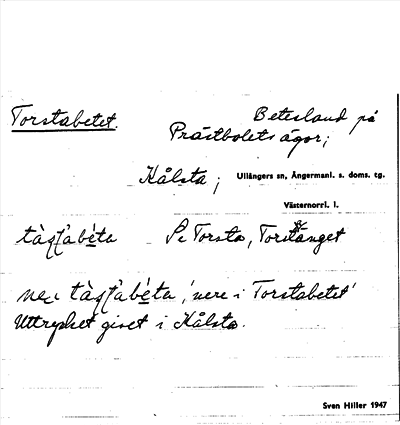 Torstabetet.
Betesland på
Prästbolets ägor;
Kålsta; Ullångers sn, Ångermanl. s. doms. tg.
Västernorrl. l.
Se Torsta,
'nere i Torstabetet'
Uttrycket givet i Kålsta.
Sven Hiller 1947